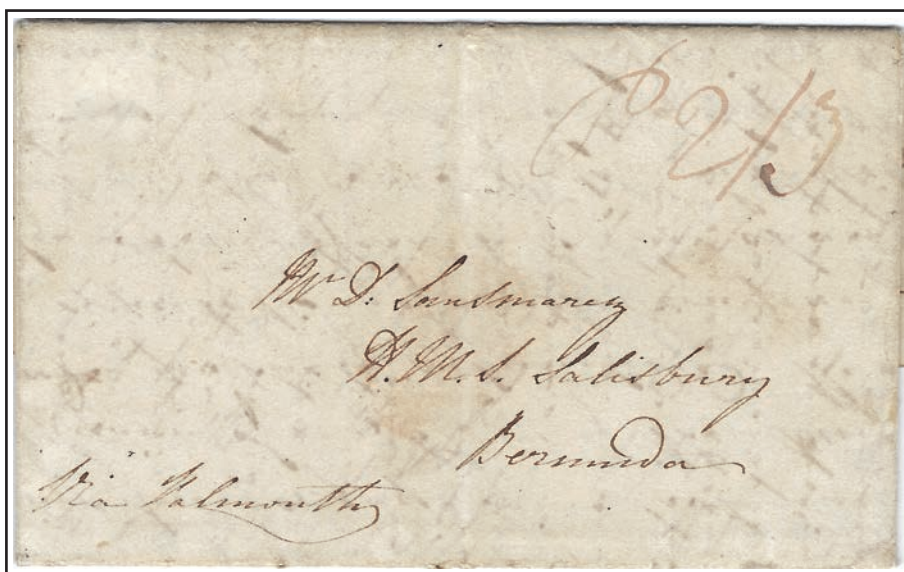 P 2/3
Mr D: Sausmarez
H.M.S. Salisbury
Bermuda
Via Falmouth